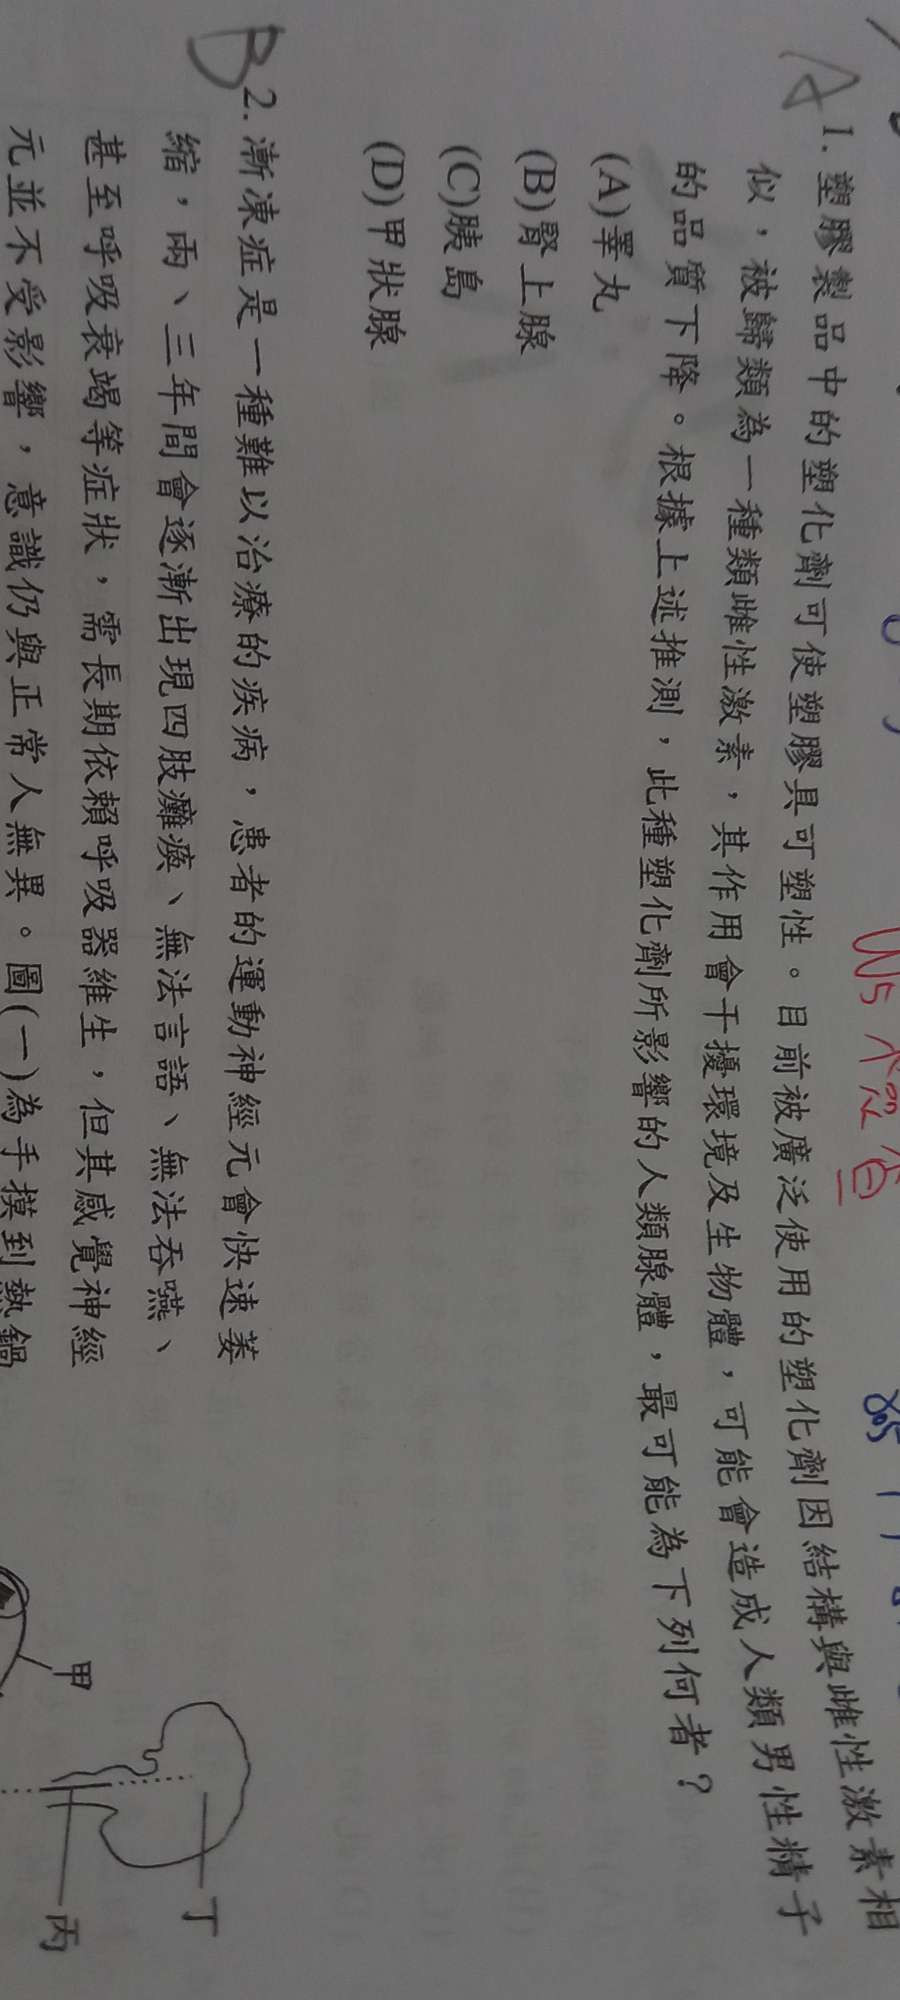 A 1. 塑膠製品中的塑化劑可使塑膠具可塑性。目前被廣泛使用的塑化劑因結構與雌性激素相
似，被歸類為一種類雌性激素，其作用會干擾環境及生物體，可能會造成人類男性精子
的品質下降。根據上述推測，此種塑化劑所影響的人類腺體，最可能為下列何者？
(A)睪丸
(B)腎上腺
(C)胰島
(D)甲狀腺
B 2. 漸凍症是一種難以治療的疾病，患者的運動神經元會快速萎
縮，兩、三年間會逐漸出現四肢癱瘓、無法言語、無法吞嚥、
甚至呼吸衰竭等症狀，需長期依賴呼吸器維生，但其感覺神經
元並不受影響，意識仍與正常人無異。圖(一)為手摸到熱鍋
甲
丁
丙